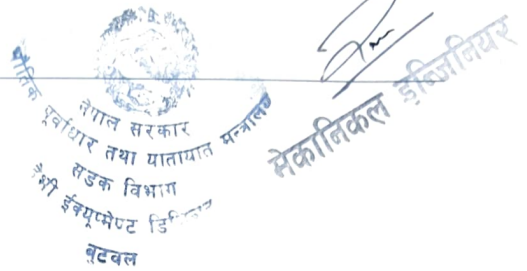 नेपाल सरकार
भौतिक पूर्वाधार तथा यातायात मन्त्रालय
सडक विभाग
हैभी ईक्यूप्मेण्ट
बुटवल
मेकानिकल इन्जिनियर